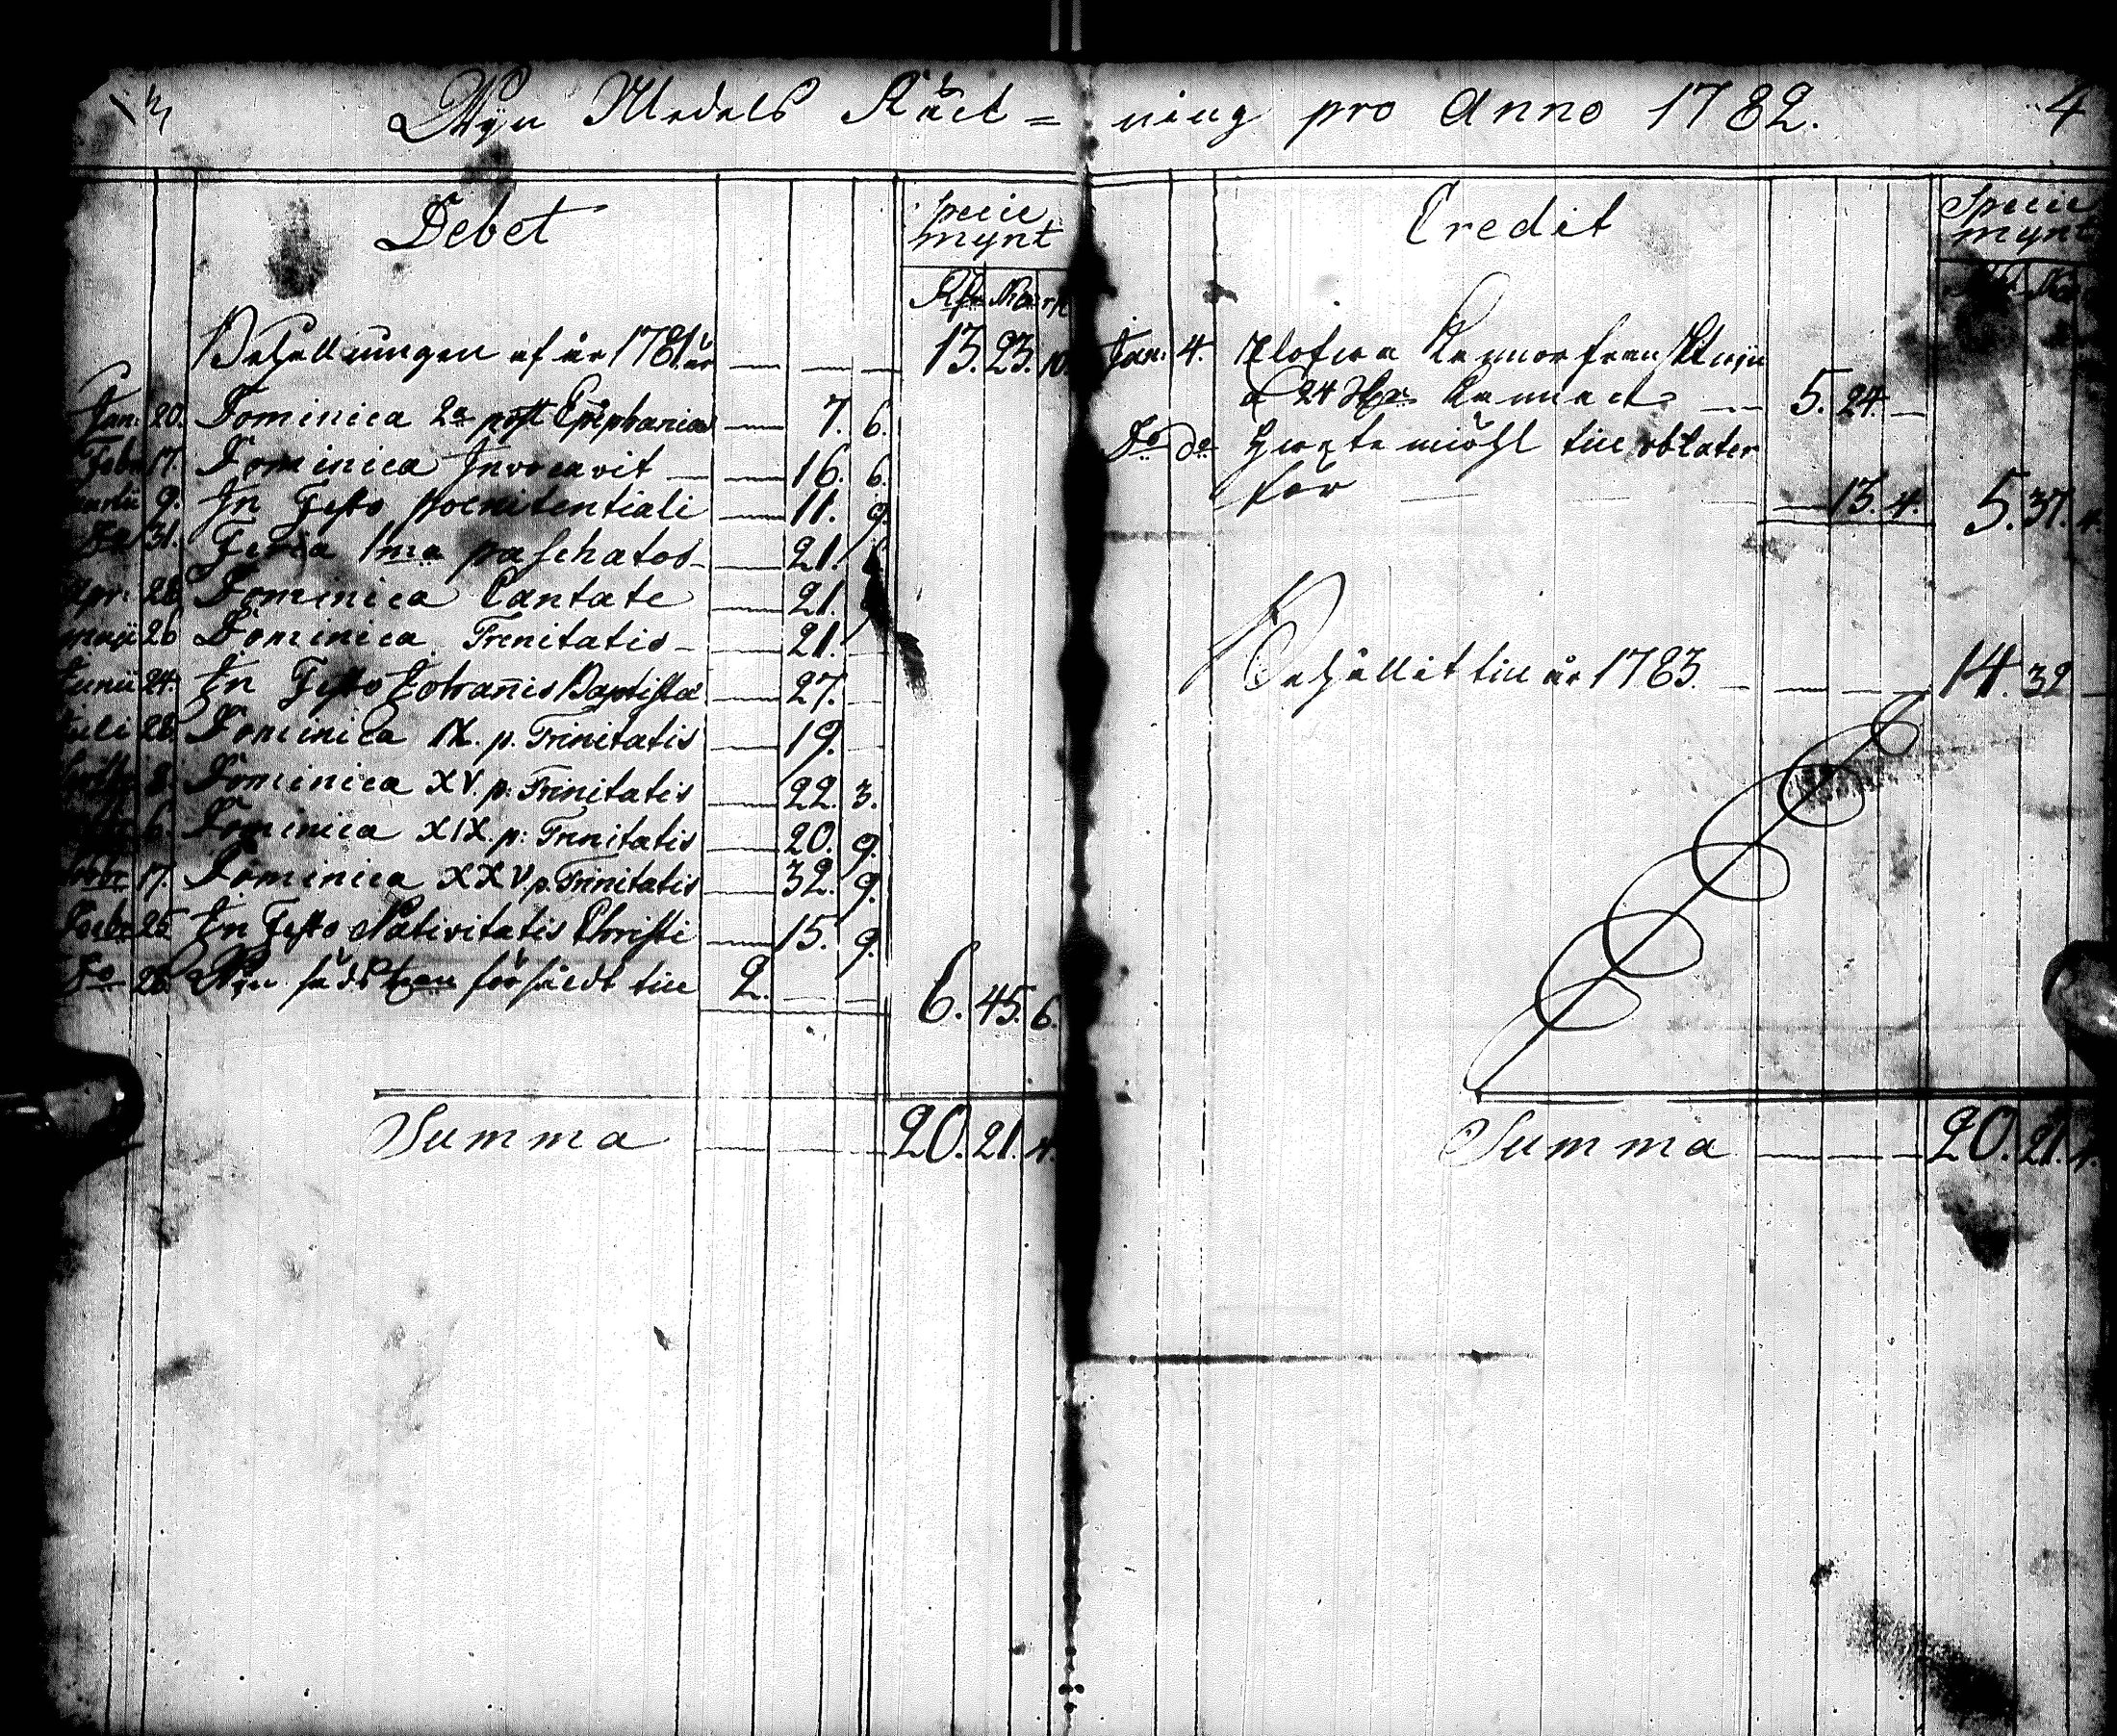 3
Wijn Medels Räck=ning pro Anno 1782.
4
Debet
Specie
mynt
Behållningen af år 1781 är — — — 13. 23. 10.
Jan: 20. Dominica 2a post Epiphanias — 7. 6.
Febr 17. Dominica Invocavit — 16. 6.
Martii 9. In Festo poenitentiali — 11. 9.
Do 31. Feria 1ma paschatos — 21.
Apr: 28 Dominica Cantate — 21.
maij 26 Dominica Trinitatis — 21. —
Junii 24. In Festo Johañis Baptistæ — 27. —
Juli 28 Dominica IX. p. Trinitatis — 19. —
8. Dominica XV. p: Trinitatis — 22. 3.
6. Dominica XIX. p: Trinitatis — 20. 9.
17. Dominica XXV. p. Trinitatis — 32. 9.
Decbr 25 In Festo Nativitatis Christi — 15. 9.
Do 26 Wijn såldt till 2. — — 6. 45. 6.
Summa — — 20. 21. 4.
Credit
Specie
mynt
Jan: 4. Elofwa Kannor fransk Wijn
a 24 Kannan — 5. 24. —
Do do Hwetemiöhl till oblater
för — — 13. 4. 5. 37. 4.
Behållit till år 1783. — — — 14. 32 —
Summa — — — 20. 21. 4.